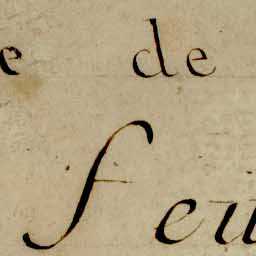 e de
feu